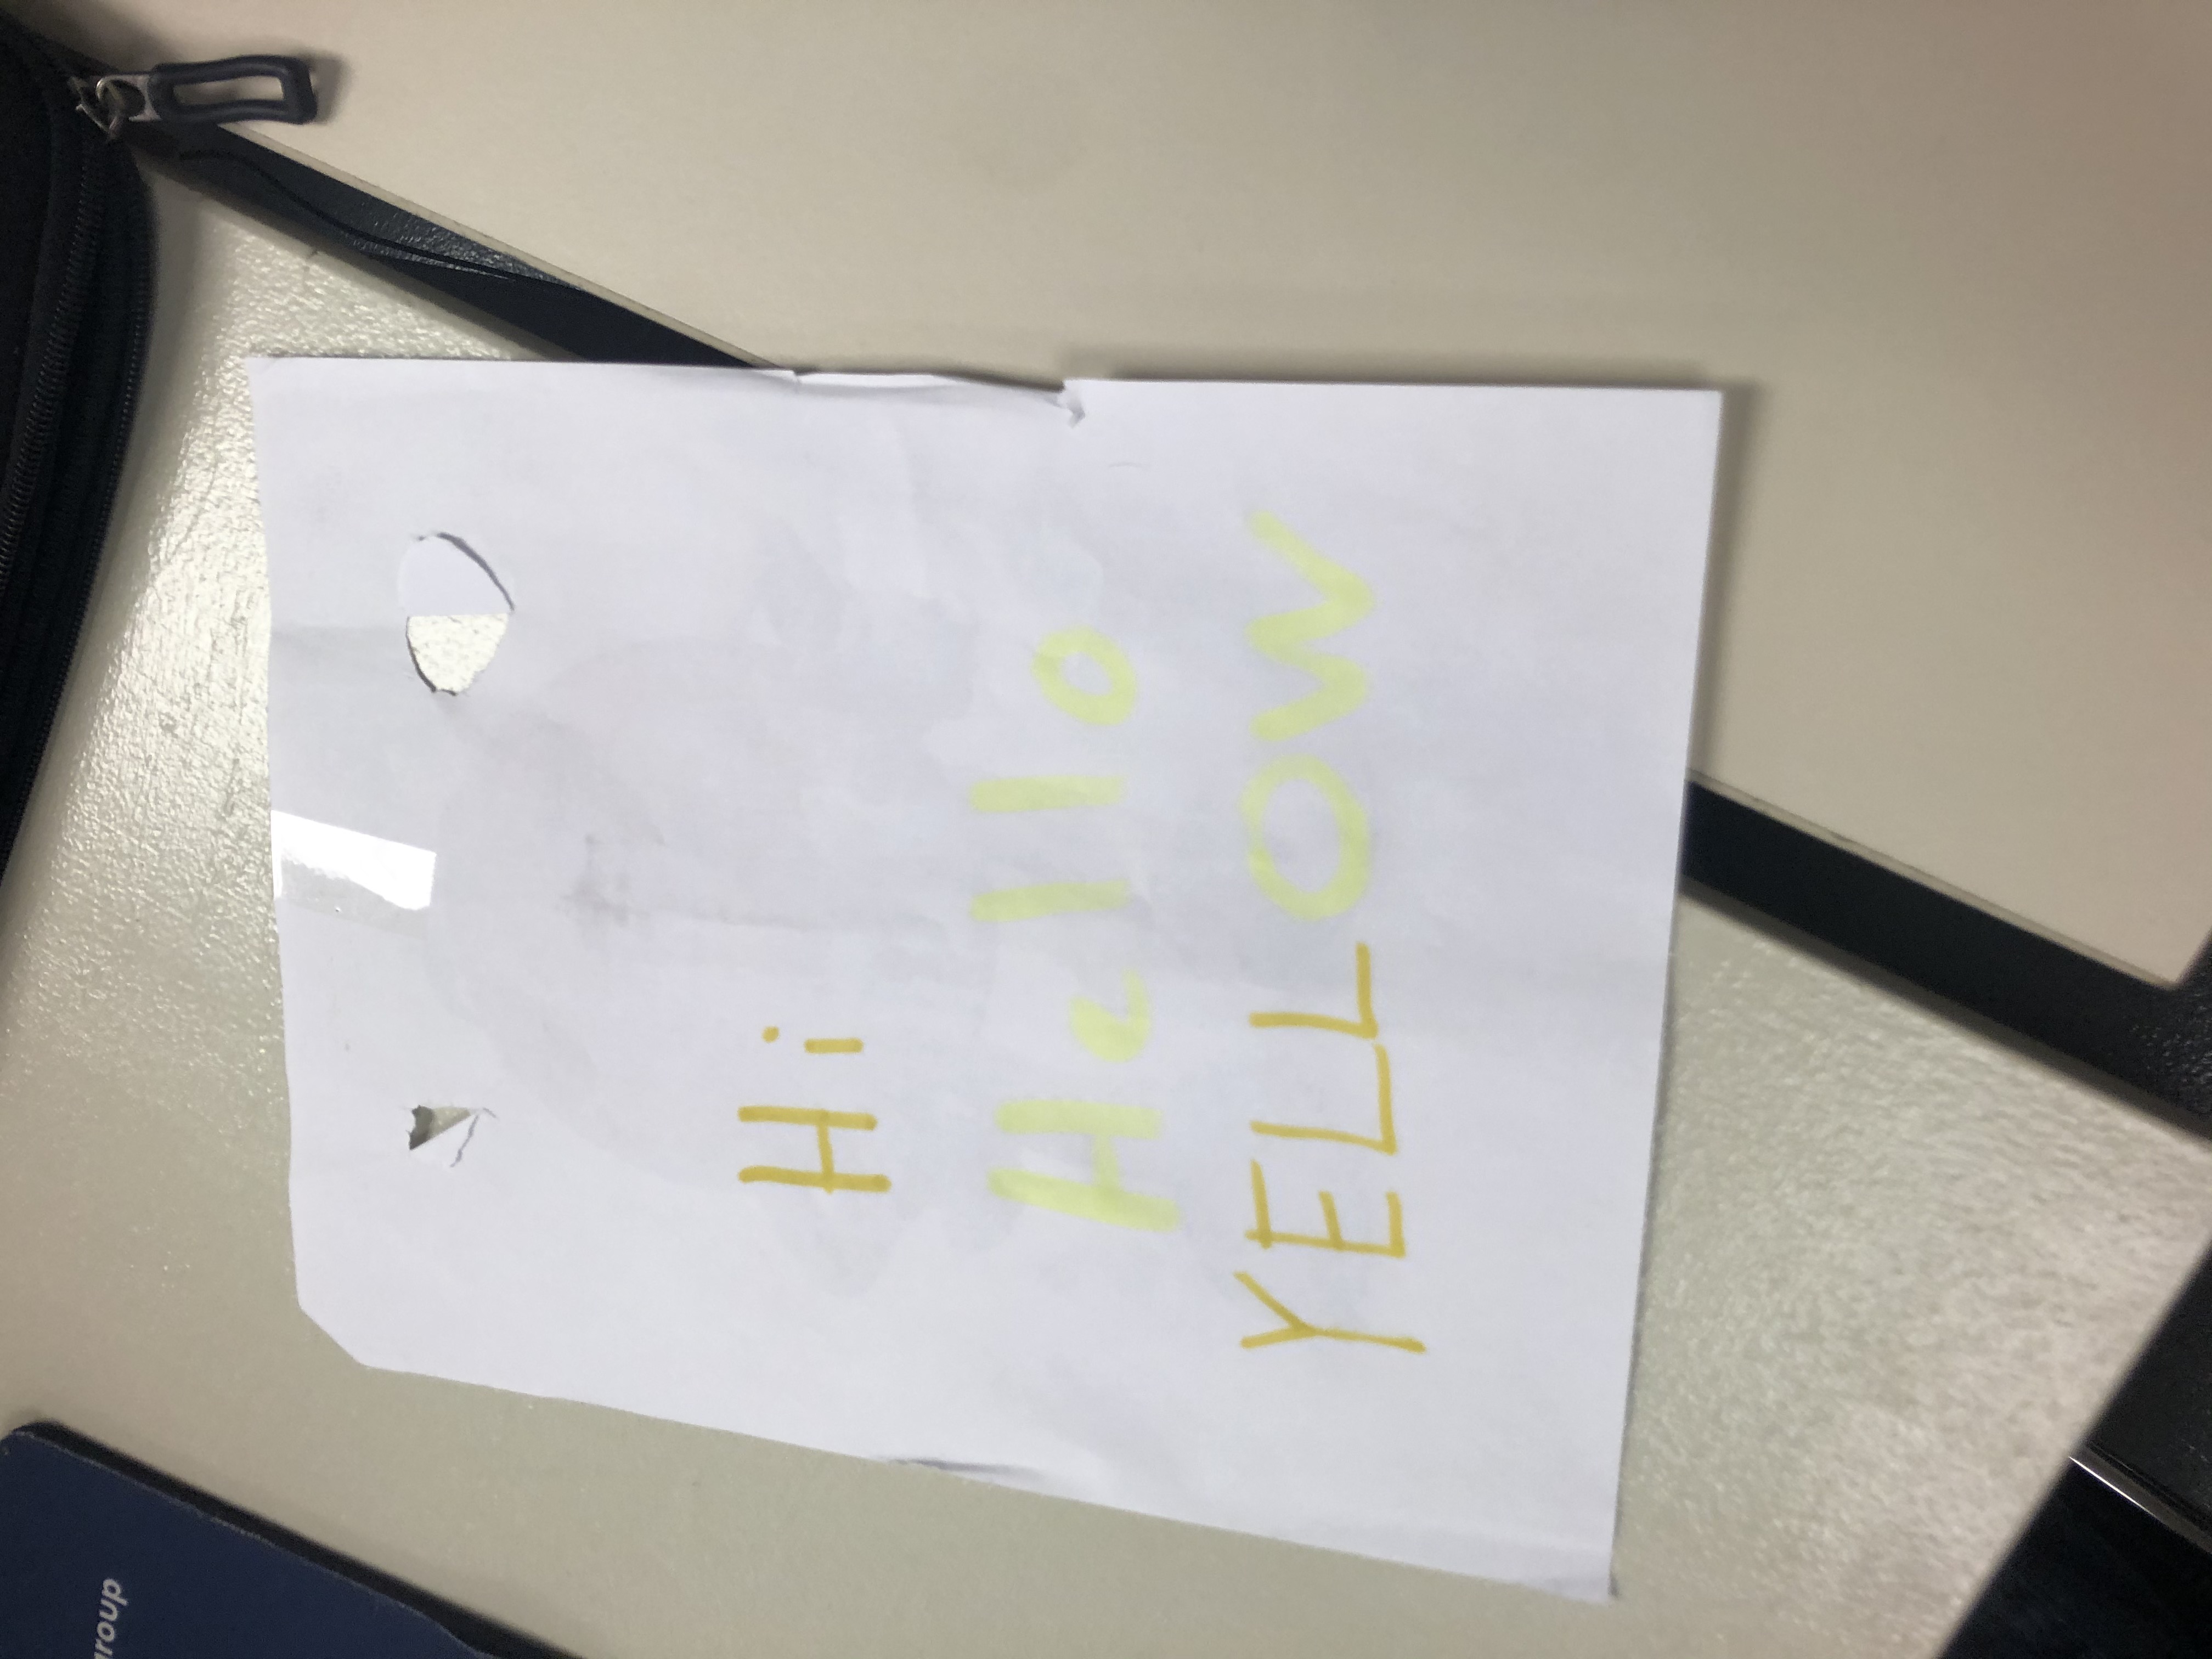 roup
Hi
Hello
YELLOW